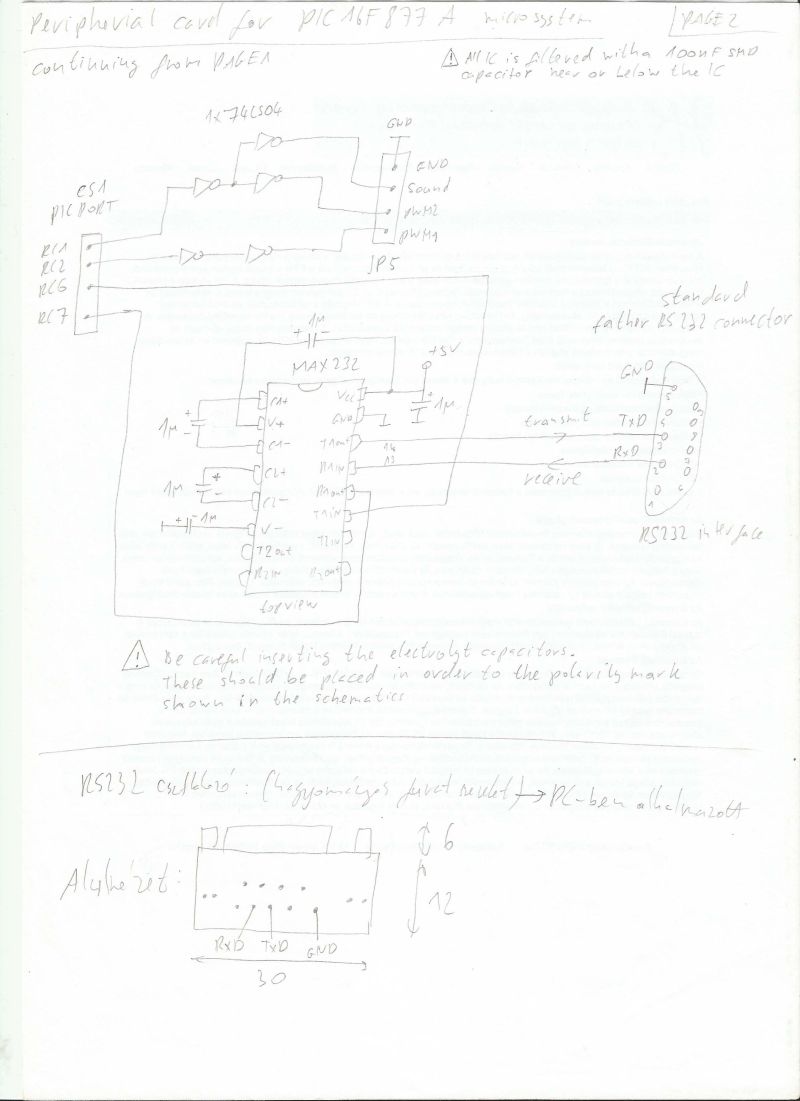 Peripherial card for PIC16F877A microsystem
PAGE2
continuing from PAGE1
All IC is filtered with a 100nF SMD
capacitor near or below the IC
1x74LS04
GND
GND
Sound
PWM2
PWM1
JP5
CS1
PIC PORT
RC1
RC2
RC6
RC7
standard
father RS232 connector
1µ
+ -
MAX232
+5V
GND
C1+
V+
C1-
C2+
C2-
V-
T2out
R2IN
Vcc
GND
T1out
R1IN
R1out
T1IN
T2IN
R2out
1µ
+
-
1µ
+
-
+ - 1µ
+
1µ
14
13
transmit
receive
TxD
RxD
5
3
8
2
6
1
topview
RS232 interface
! Be careful inserting the electrolyt capacitors.
These should be placed in order to the polarity mark
shown in the schematics
RS232 csatlakozó : (hagyományos furat szerelt) → PC-ben alkalmazott
Alulnézet:
6
12
RxD TxD GND
30